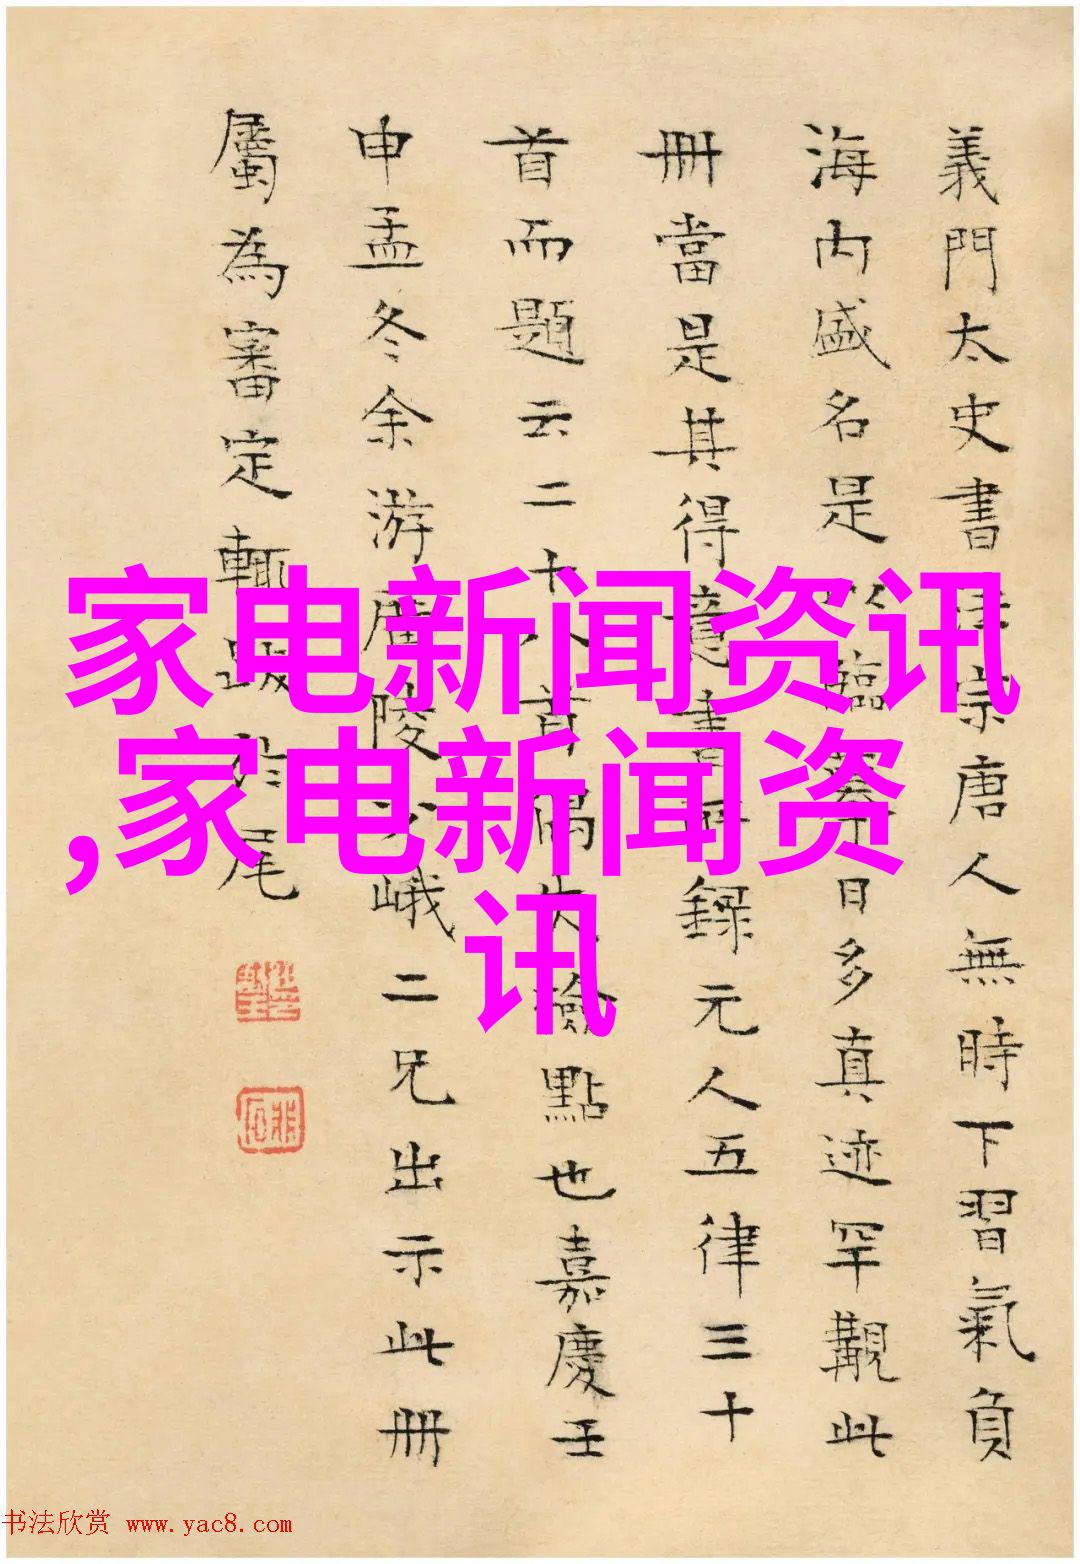 義門太史書宗唐人無時下習氣負
海内盛名是以臨摹日多真迹罕覯此
冊當是其得意書錄元人五律三十
首而題云二十八首偶失檢點也嘉慶壬
申孟冬余游廣陵少峨二兄出示此冊
屬為審定輒跋於尾
家电新闻资讯
,家电新闻资
讯
书法欣赏 www.yac8.com